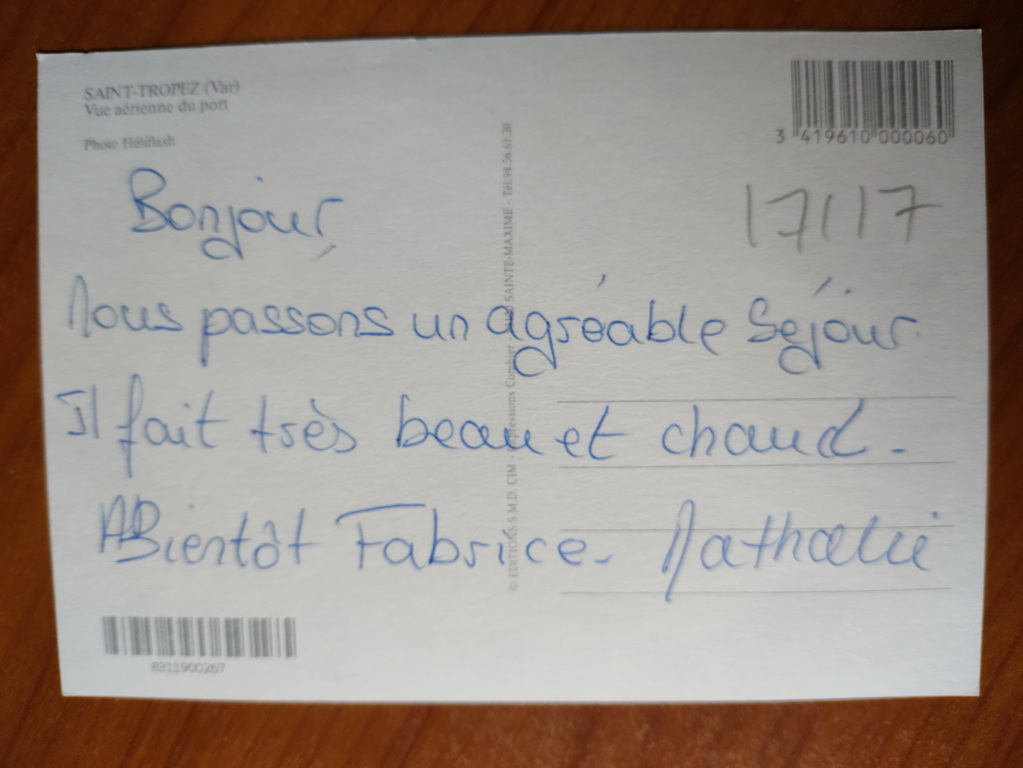 SAINT-TROPEZ (Var)
Vue aérienne du port
Photo Héliflash
3 419610 000060
17117
Bonjour,
Nous passons un agréable séjour.
Il fait très beau et chaud.
A Bientôt Fabrice. Nathalie
© EDITIONS S.M.D. CIM - Impressions Combier - SAINTE-MAXIME - Tél. 94.56.67.30
8311900267